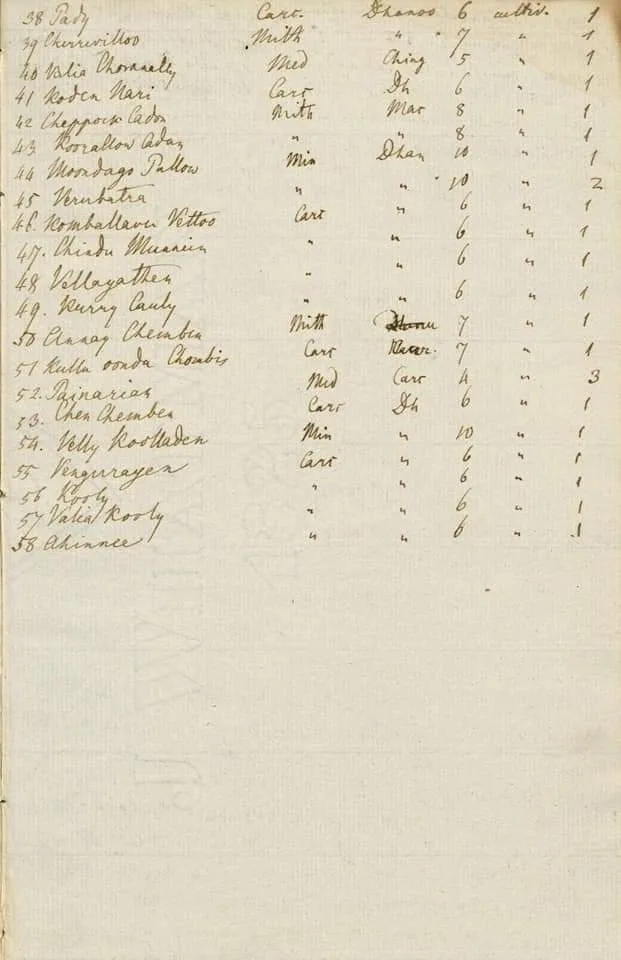 38 Pady Carc. Dhanoo 6 cultiv. 1
39 Cherrevilloo Mith " 7 " 1
40 Valia Chornnelly Med Ching 5 " 1
41 Koden Nari Carc Dh 6 " 1
42 Cheppock Cadon Mith Mac 8 " 1
43 Koorallow Adan " " 8. " 1
44 Moondago Pallow Min Dhan 10 " 1
45 Verubatra " " 10 " 2
46. Komballavu Vettoo Carc " 6 " 1
47. Chindu Munnein " " 6 " 1
48 Vellayathen " " 6 " 1
49. Kurry Cauly " " 6 " 1
50 Annay Chemben Mith 7 " 1
51 Kullu oonda Chombis Carc 7 " 1
52. Painarian Med Carc 4 " 3
53. Chen Chemben Carc Dh 6 " 1
54. Velly Koolladen Min " 10 " 1
55 Vengurayen Carc " 6 " 1
56 Kooly " " 6 " 1
57 Valia Kooly " " 6 " 1
58 Ahinnee " " 6 " 1